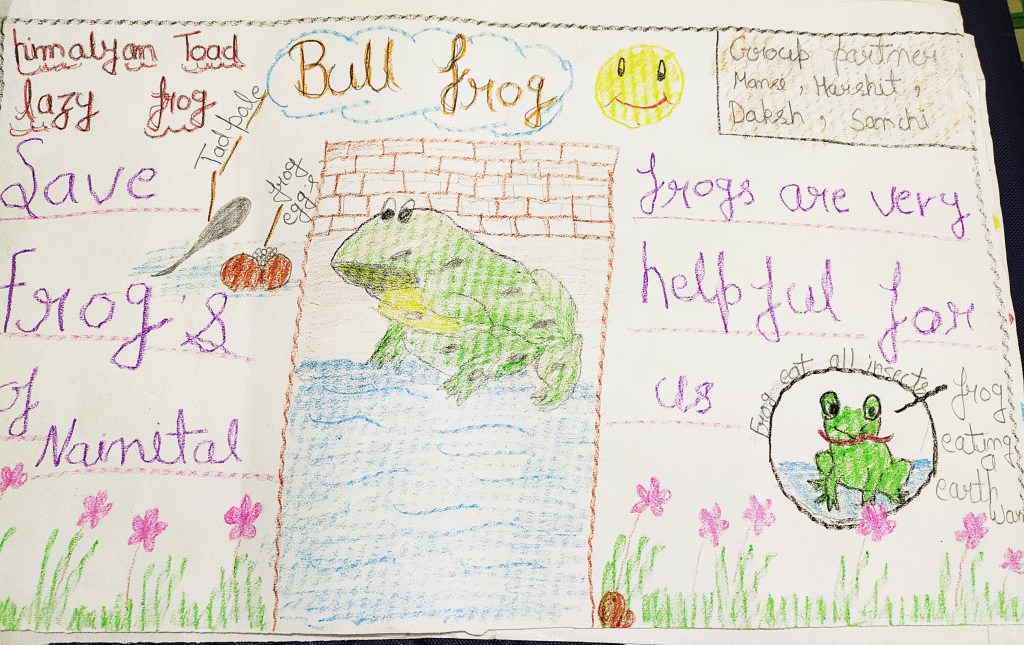 himalyan Toad
lazy frog
Bull frog
Group partner
Harshit,
Daksh, Sanchi
Tadpole
frog
egg's
Save
Frog's
of
Nainital
frogs are very
helpful for
us
Frog eat all insects
frog
eating
a
earth